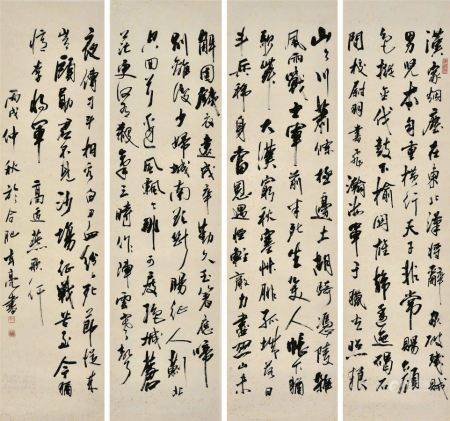 漢家烟塵在東北漢將辭家破殘賊
男兒本自重橫行天子非常賜顏
色摐金伐鼓下榆關旌旆逶迤碣石
間校尉羽書飛瀚海單于獵火照狼
山山川蕭條極邊土胡騎憑陵雜
風雨戰士軍前半死生美人帳下猶
歌舞大漠窮秋塞草腓孤城落日
斗兵稀身當恩遇恒輕敵力盡關山未
解圍鐵衣遠戍辛勤久玉箸應啼
別離後少婦城南欲斷腸征人薊北
空回首邊風飄飄那可度絕域蒼
茫更何有殺氣三時作陣雲寒聲一
夜傳刁斗相看白刃血紛紛死節從來
豈顧勳君不見沙場征戰苦至今猶
憶李將軍 高適燕歌行
丙戌仲秋於合肥亮書